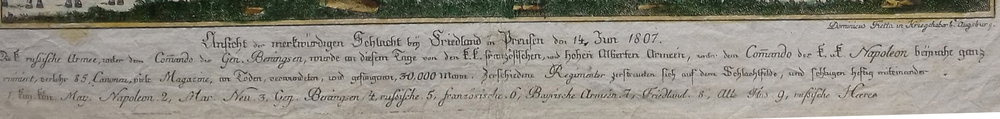 Dominicus Fietta in Kriegshaber b. Augsburg.
Ansicht der merkwürdigen Schlacht bey Friedland in Preusen den 14, Jun 1807.
Die k. russische Armee, unter dem Comando des Gen. Beningsen, wurde an diesem Tage von den k.k. französischen, und hohen Alierten Armeen, unter dem Comando des k. k. Napoleon beinahe ganz
ruinirt, verlohr 85, Canonen, viele Magazine, an Toden, verwundeten, und gefangenen, 30,000 Mann. Verschiedene Regimenter zerstreuten sich auf dem Schlachtfelde, und schlugen heftig miteinander
1, May. Napoleon. 2, Mar. Neu 3, Gen. Beningsen 4, russische. 5, französische. 6, Bayrische Armeen. 7, Friedland. 8, Alle Flus 9, russische Heere